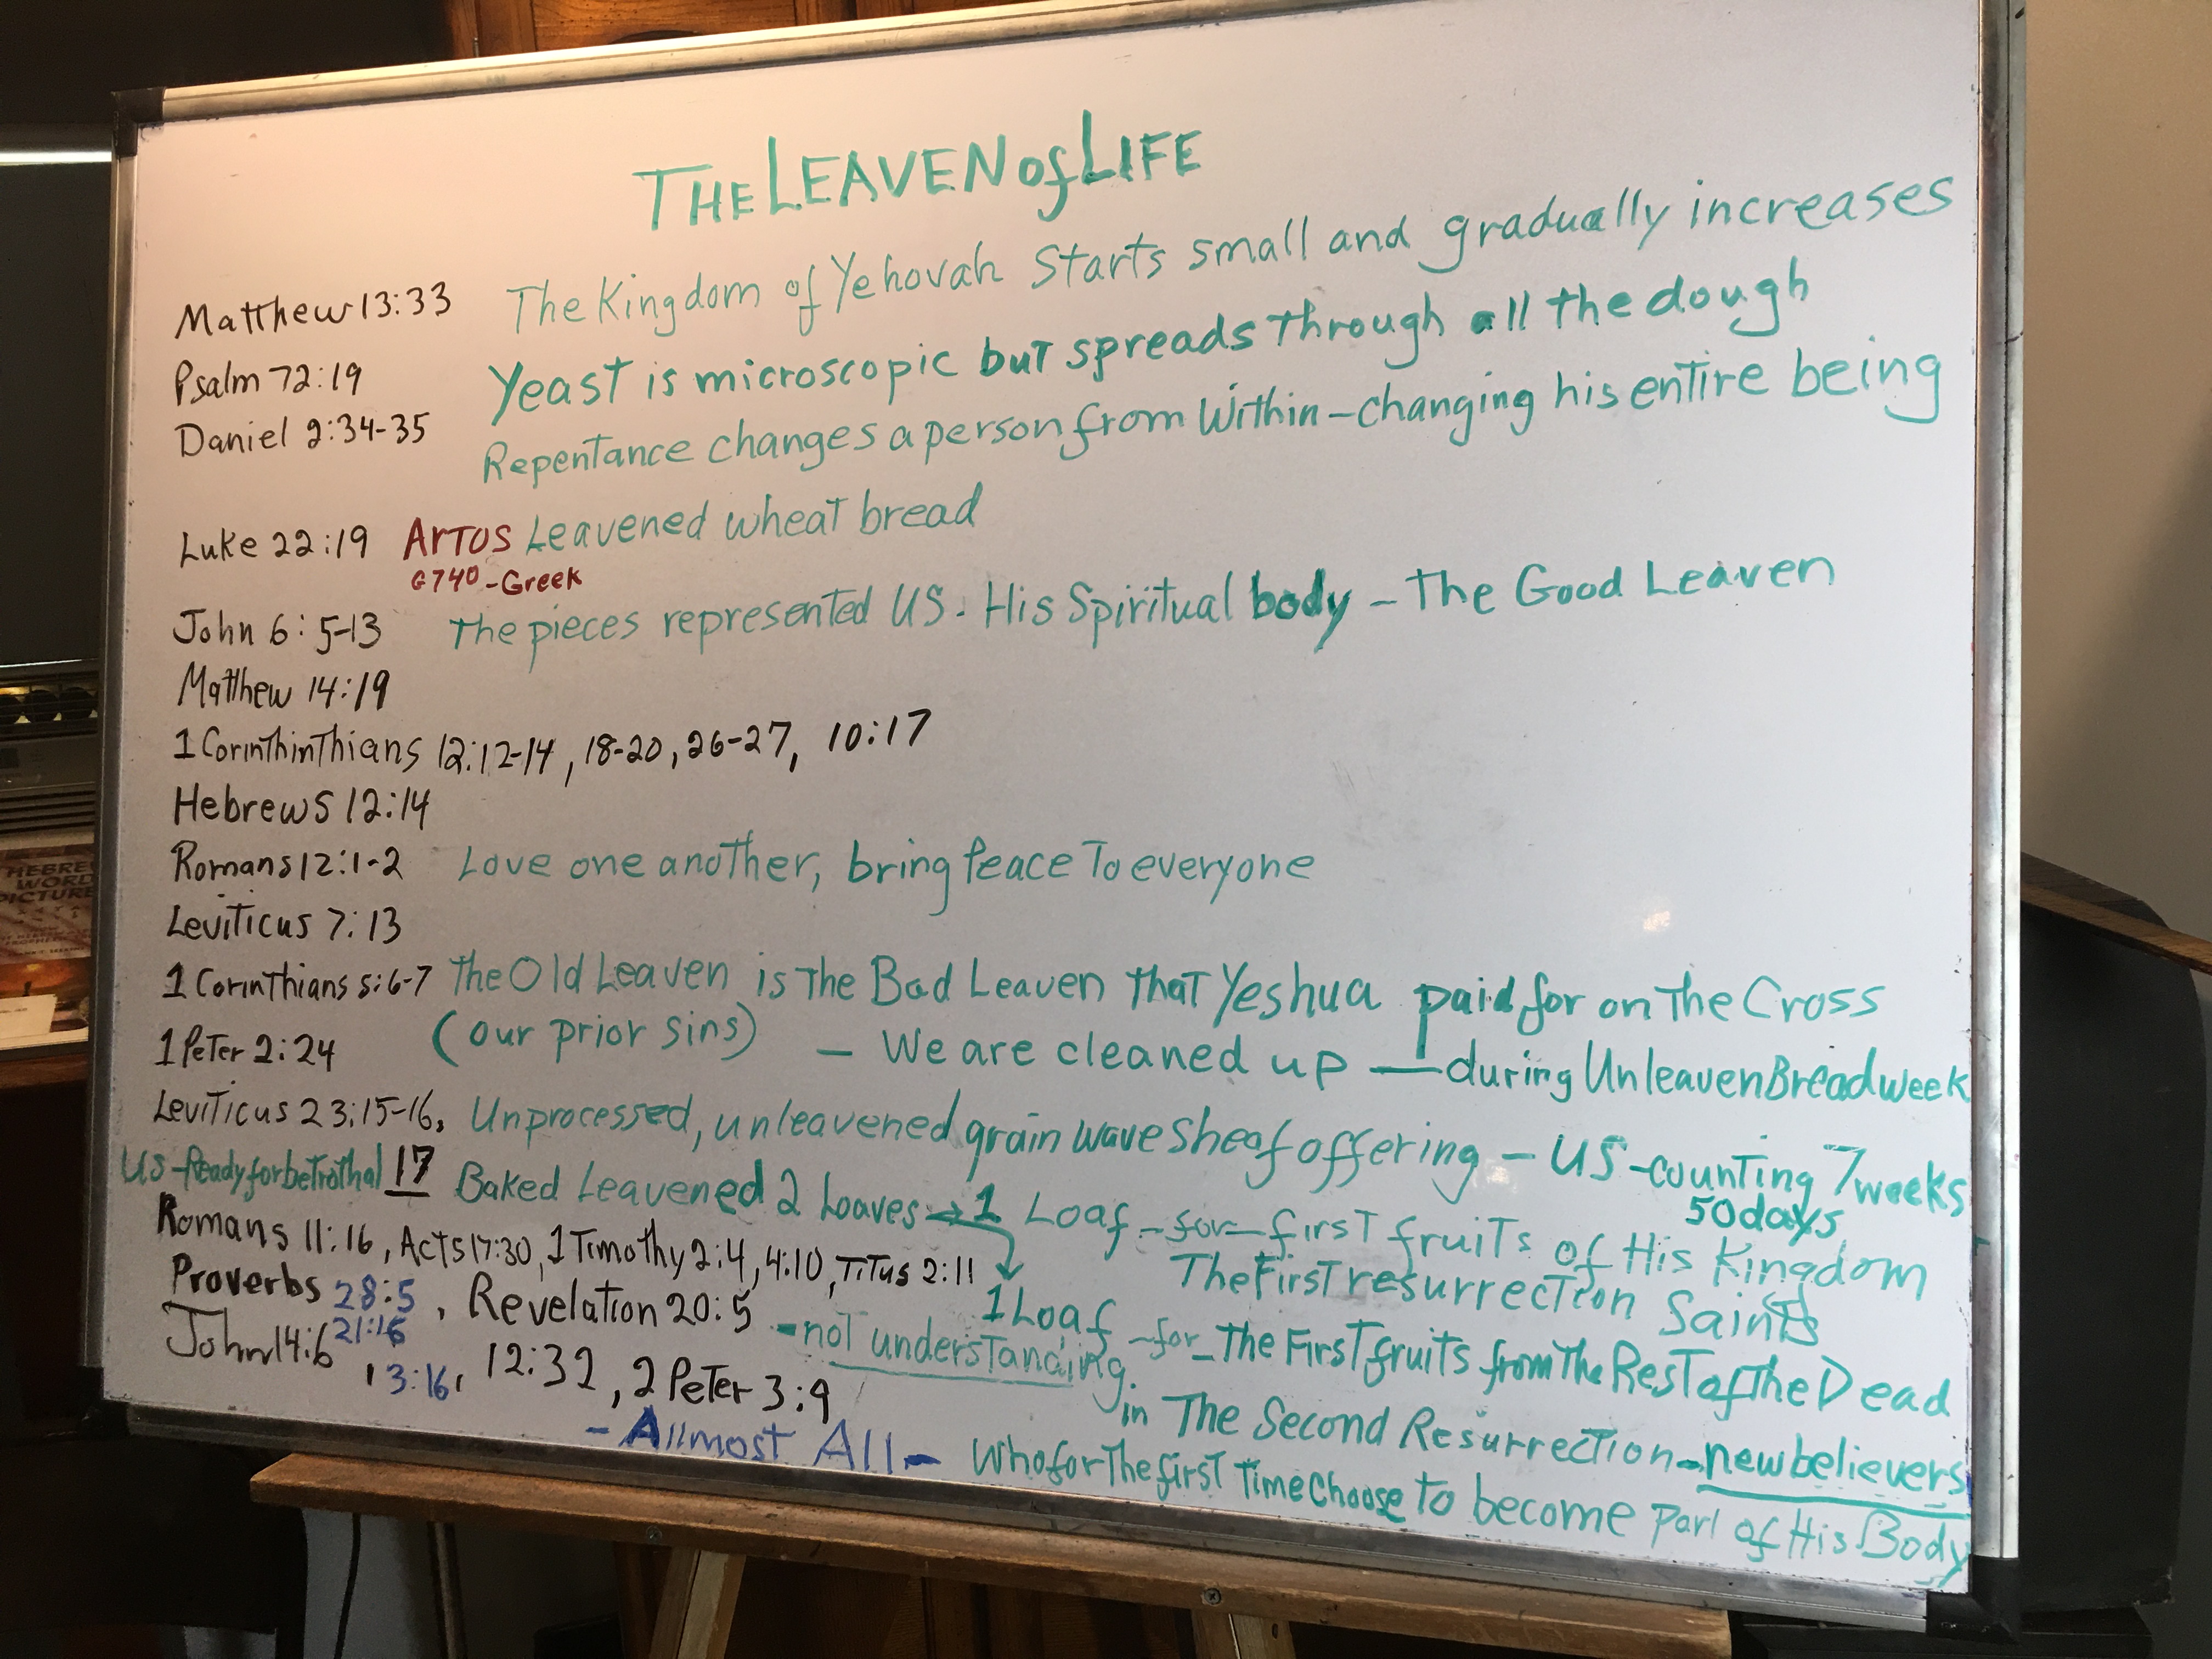 THE LEAVEN of LIFE
Matthew 13:33 The Kingdom of Yehovah Starts small and gradually increases
Psalm 72:19 Yeast is microscopic but spreads through all the dough
Daniel 2:34-35 Repentance changes a person from Within - changing his entire being
Luke 22:19 Artos Leavened wheat bread
G740 - Greek
John 6:5-13 The pieces represented US - His Spiritual body - The Good Leaven
Matthew 14:19
1 Corinthinthians 12:12-14, 18-20, 26-27, 10:17
Hebrews 12:14
Romans 12:1-2 Love one another, bring Peace To everyone
Leviticus 7:13
1 Corinthians 5:6-7 The Old Leaven is The Bad Leaven that Yeshua paid for on The Cross
1 Peter 2:24 (our prior sins) - We are cleaned up - during Unleaven Bread week
Leviticus 23:15-16, Unprocessed, unleavened grain wave sheaf offering - US - counting 7 weeks
50 days
US - Ready for betrothal 17 Baked Leavened 2 Loaves → 1 Loaf - for - first fruits of His Kingdom
Romans 11:16, Acts 17:30, 1 Timothy 2:4, 4:10, Titus 2:11 The First resurrection Saints
Proverbs 28:5, Revelation 20:5 1 Loaf - for - The First fruits from The Rest of The Dead
21:16 - not understanding.
John 14:6, 3:16, 12:32, 2 Peter 3:9 in The Second Resurrection - new believers
- Allmost All - Who for The first Time Choose to become part of His Body
HEBREW
WORD
PICTURE